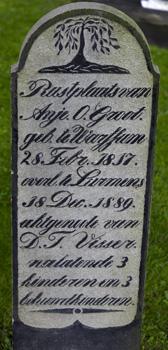 Rustplaats van
Anje. O. Groot.
geb. te Warffum
28. Febr. 1817.
overl. te Lutmens
18. Dec. 1889.
echtgenoote van
D. T. Visser.
nalatende 3
kinderen en 3
behuwdkinderen.